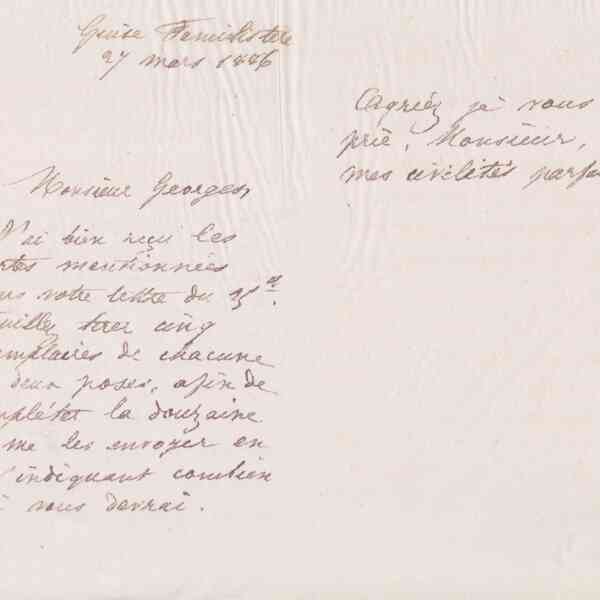 Guise Familistère
27 mars 1886
Monsieur Georges,
J'ai bien reçu les
rtes mentionnées
ns votre lettre du 25 ct.
uillez tirer cinq
emplaires de chacune
deux poses, afin de
mpléter la douzaine
me les envoyer en
indiquant combien
vous devrai.
Agréez je vous
prie, Monsieur,
mes civilités parfa